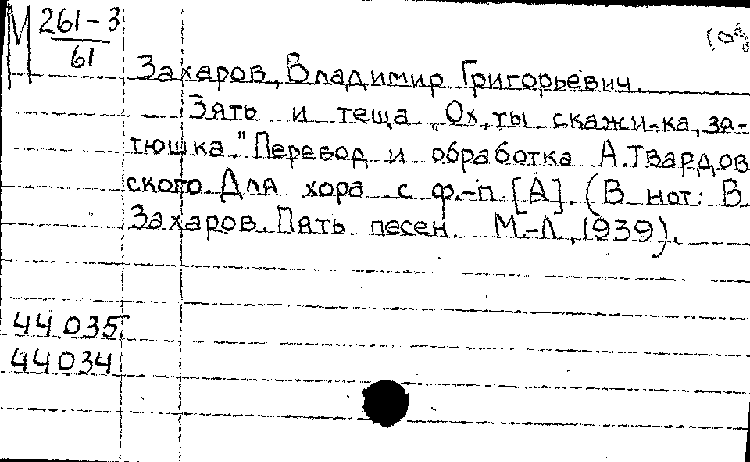 М 261-3
61
Захаров, Владимир Григорьевич.
Зять и теща "Ох, ты скажи-ка, зя-
тюшка." Перевод и обработка А. Твардов
ского. Для хора с ф.-п. [А]. (В нот: В.
Захаров. Пять песен. М.-Л., 1939).
44035
44034